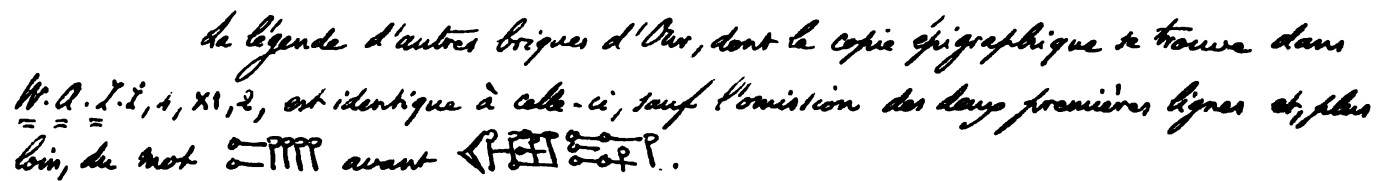 La légende d'autres briques d'Our, dont la copie épigraphique se trouve dans
W. A. I. I, 4, XI, 2, est identique à celle-ci, sauf l'omission des deux premières lignes et, plus
loin, du mot avant .